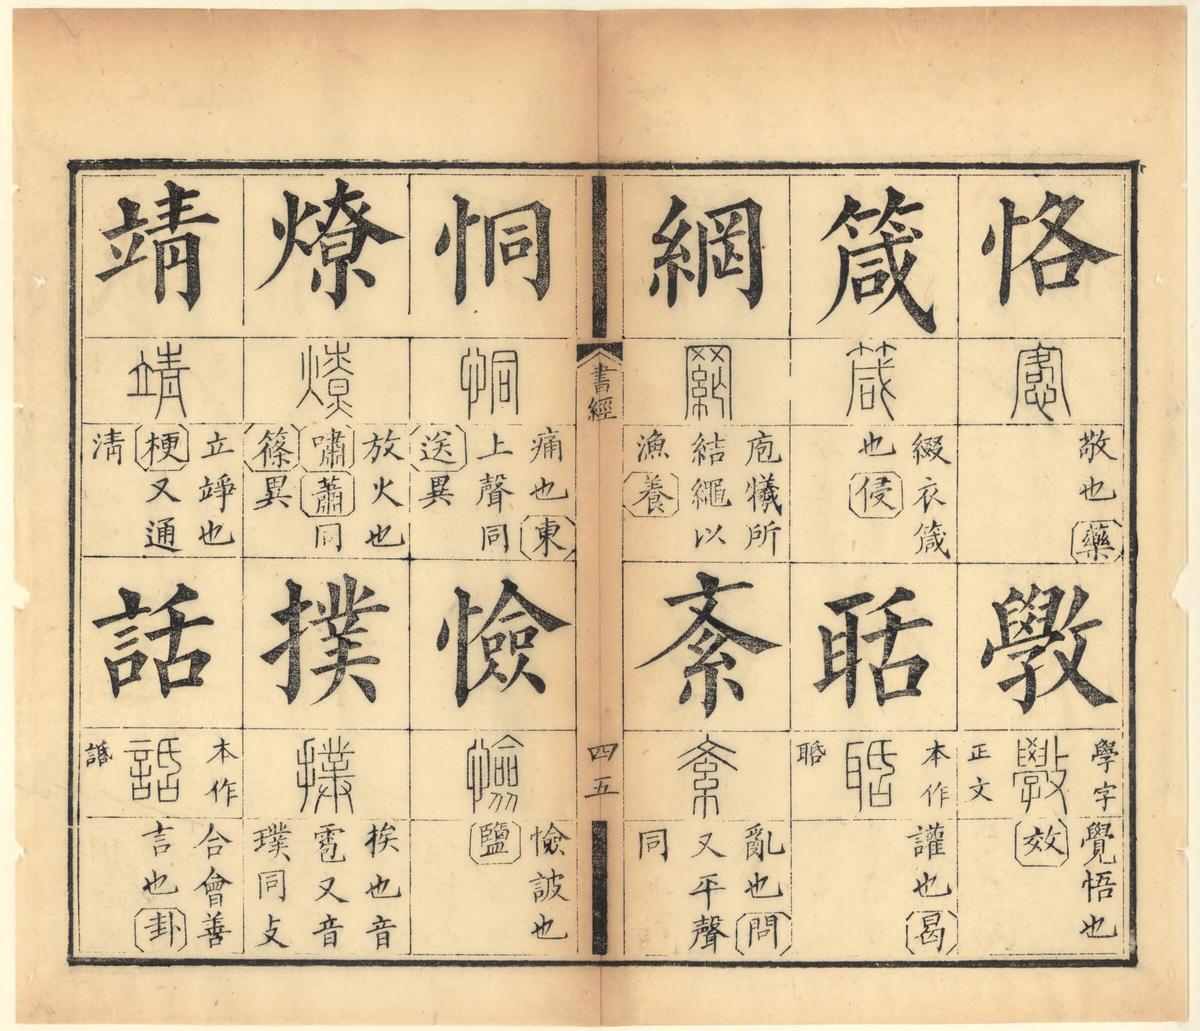 恪
愙
敬也藥
斆
學字
斆
正文
覺悟也
效
箴
箴
綴衣箴
也侵
聒
本作
聒
讙也曷
網
網
庖犧所
結繩以
漁養
紊
紊
亂也問
又平聲
同
書經
四五
恫
恫
痛也東
上聲同
送異
憸
憸
憸詖也
鹽
燎
燎
放火也
嘯蕭同
篠異
撲
撲
挨也音
雹又音
璞同攴
靖
靖
立竫也
梗又通
清
話
本作
話
合會善
言也卦